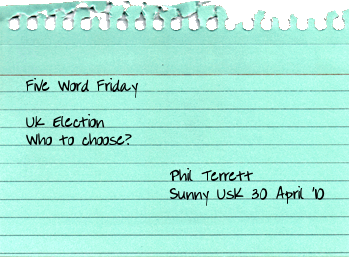 Five Word Friday
UK Election
Who to choose?
Phil Terrett
Sunny Usk 30 April '10